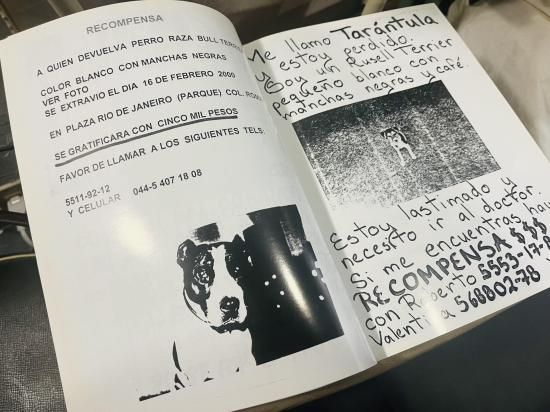 RECOMPENSA
A QUIEN DEVUELVA PERRO RAZA BULL TERRIE
COLOR BLANCO CON MANCHAS NEGRAS
VER FOTO
SE EXTRAVIO EL DIA 16 DE FEBRERO 2000
EN PLAZA RIO DE JANEIRO (PARQUE) COL. ROMA
SE GRATIFICARA CON CINCO MIL PESOS
FAVOR DE LLAMAR A LOS SIGUIENTES TELS.
5511-92-12
Y CELULAR 044-5 407 18 08
Me llamo Tarántula
y estoy perdido.
Soy un Rusell Terrier
pequeño blanco con
manchas negras y café.
Estoy lastimado y
necesito ir al doctor.
Si me encuentras hay
RECOMPENSA $$$
con Roberto 5553-17-
Valentina 568802-78